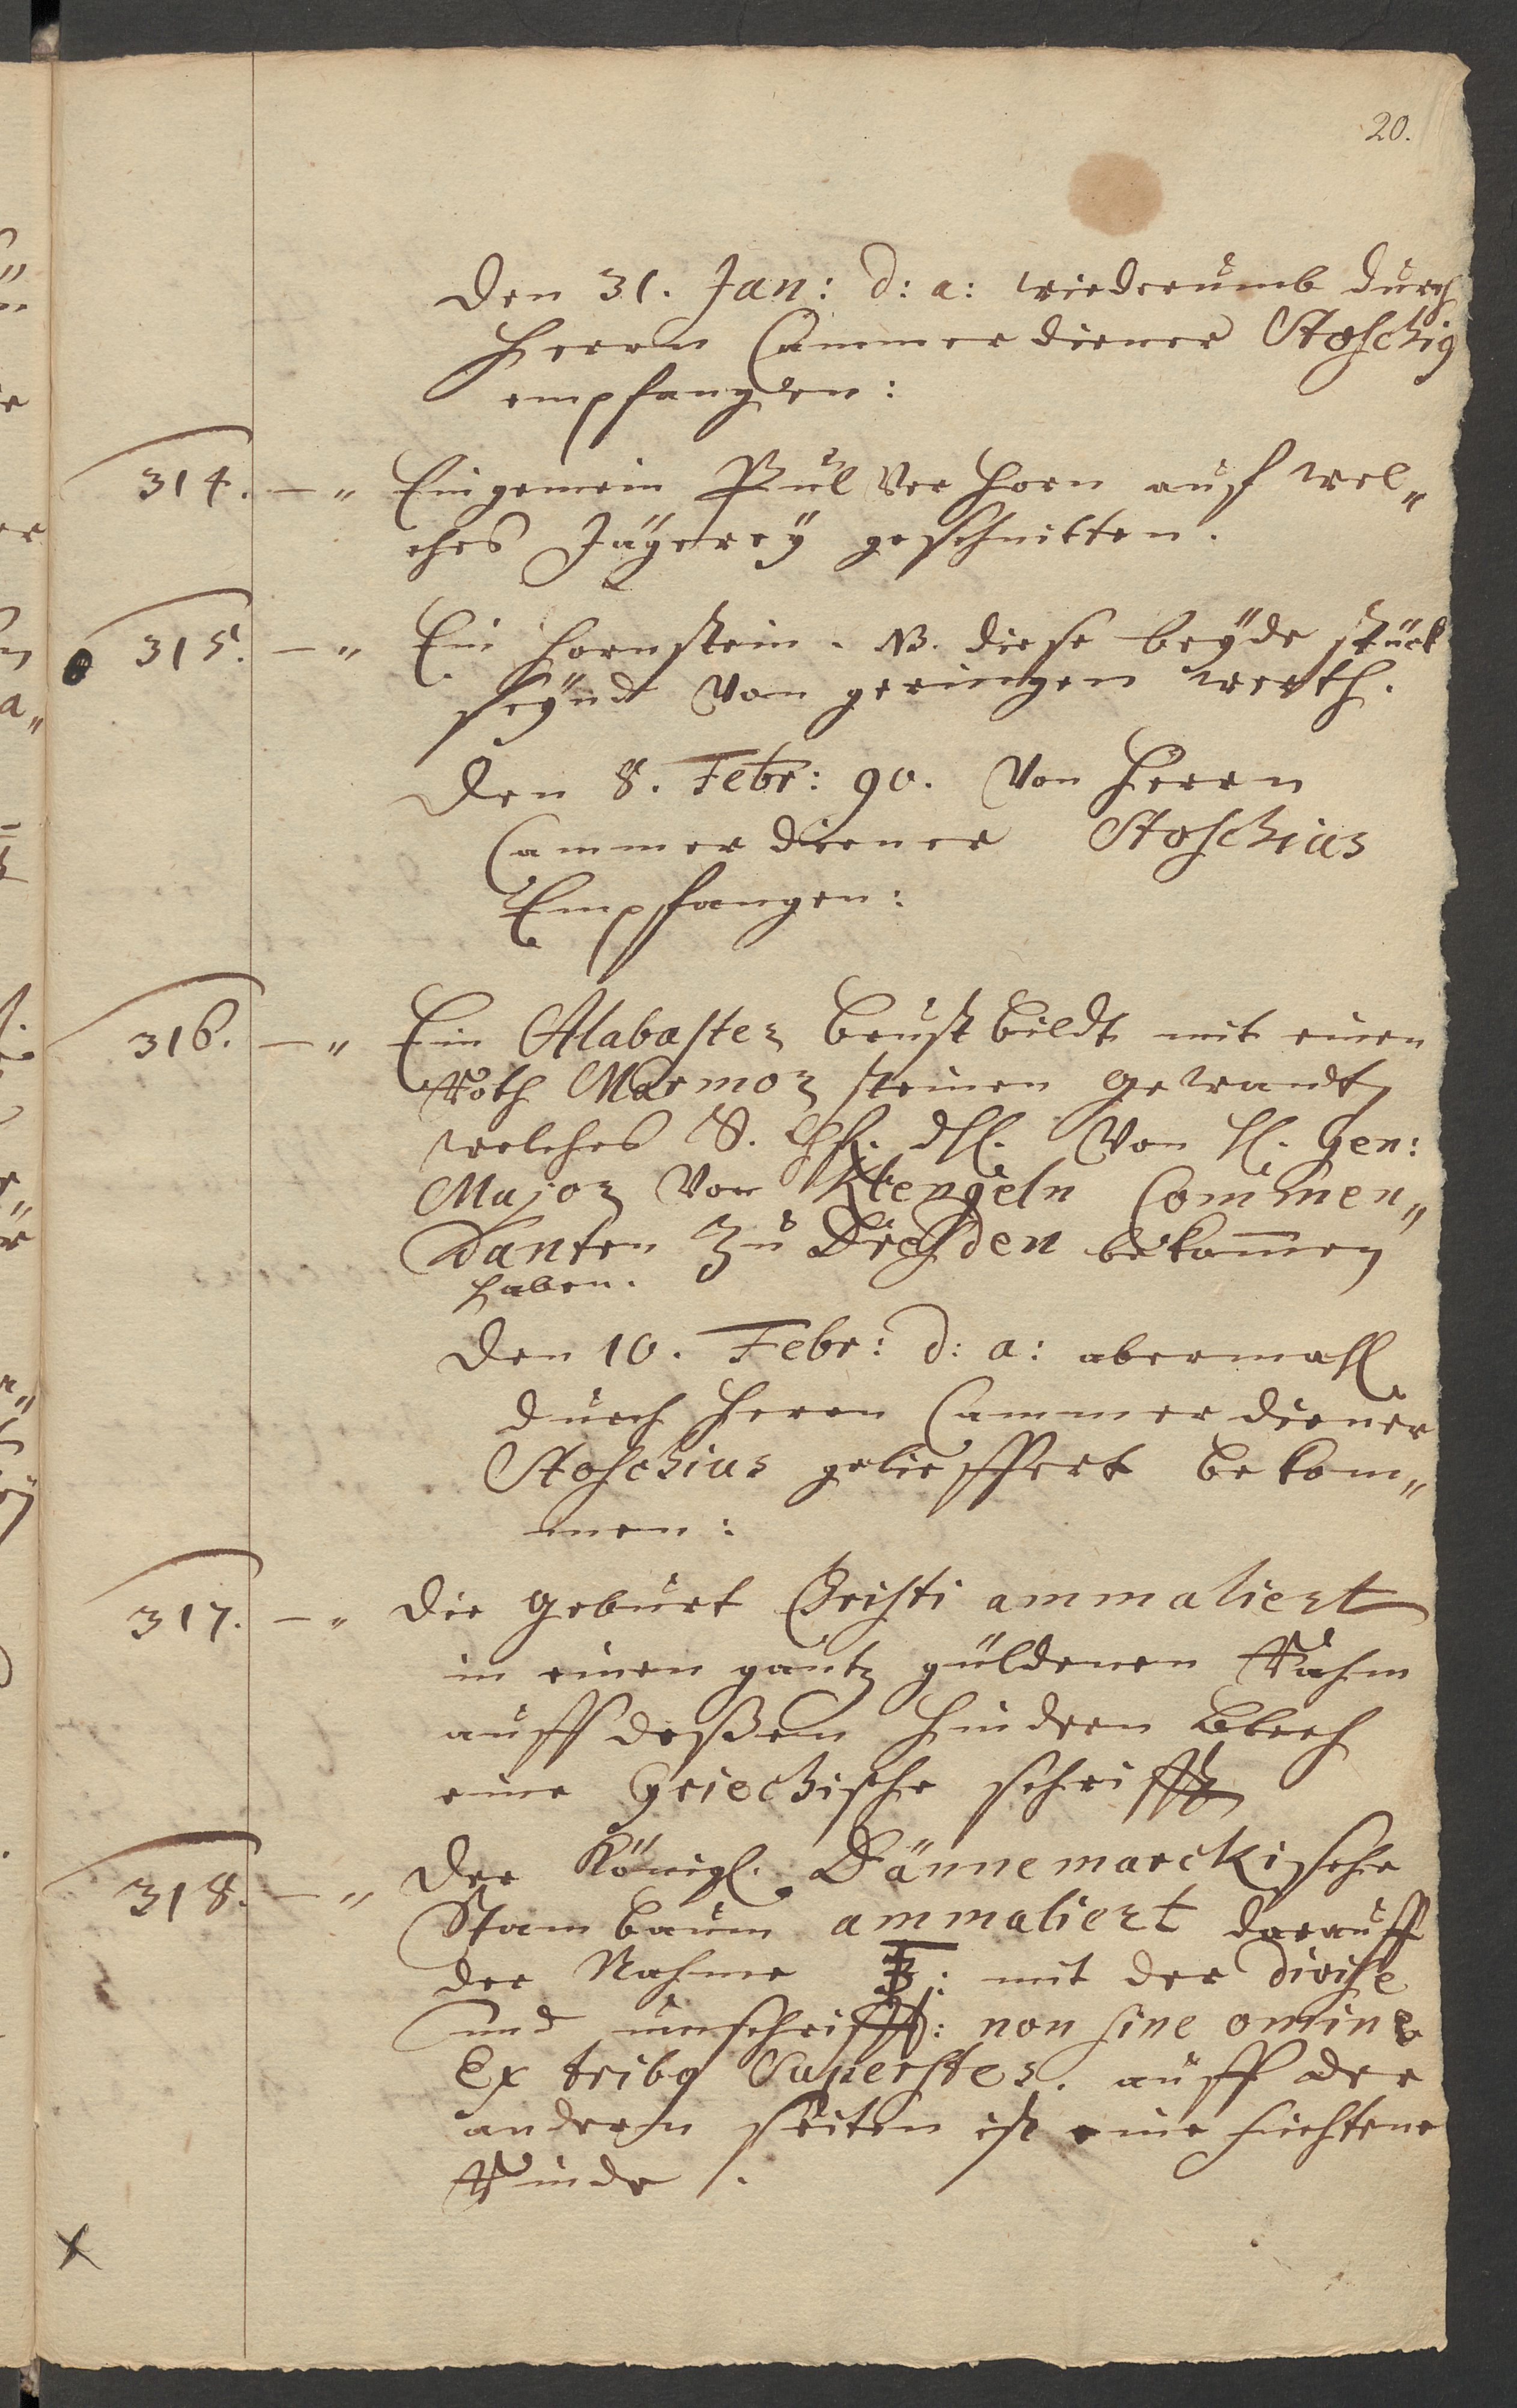 20.
Den 31. Jan: d: a: wiederumb durch
Herrn Cammerdiener Stoschig
empfangen:
314. — " Ein gemein Pulver Horn auf wel„
ches Jägerey geschnitten.
315. — " Ein Hornstein. NB. diese beyde stück
seynd von geringen werth.
Den 8. Febr: 90. von Herrn
Cammerdiener Stoschius
Empfangen:
316. — " Ein Alabaster Brustbildt mit einen
Roth Marmor steinen gewandt,
welches S. Chf. dhl. von H. Gen:
Major von Klengeln Commen„
danten Zu Dreßden bekom̄en
haben.
Den 10. Febr: d: a: abermahl
durch Herrn Cammerdiener
Stoschius gelieffert bekom„
men:
317. — " Die Geburt Christi ammaliert
in einen gantz güldenen Rahm
auff deßen hindern Blech
eine Griechische schrifft
318. — " Der Königl. Dännemarckische
Stambaum ammaliert darauff
der Nahme : mit der divise
und umschrifft: non sine omine
Ex tribq Superstes. auff der
andern seiten ist eine fichtene
Rinde.
x